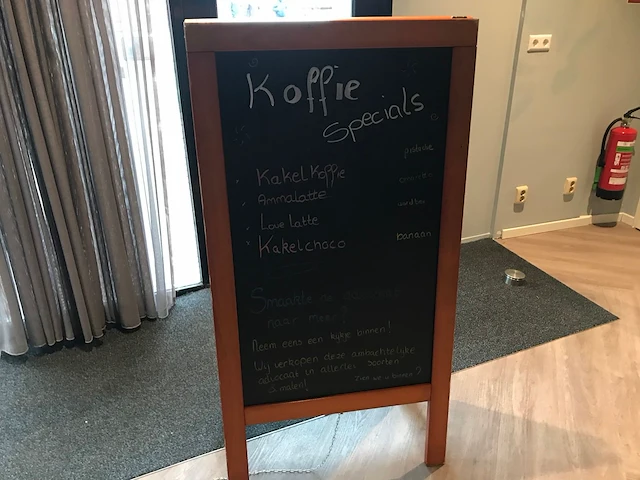 Koffie
Specials
pistache
Kakel Koffie
Ammalatte
Love latte
Kakelchoco banaan
Smaakte de
naar meer?
Neem eens een kijkje binnen!
Wij verkopen deze ambachtelijke
advocaat in allerlei soorten
smaken!